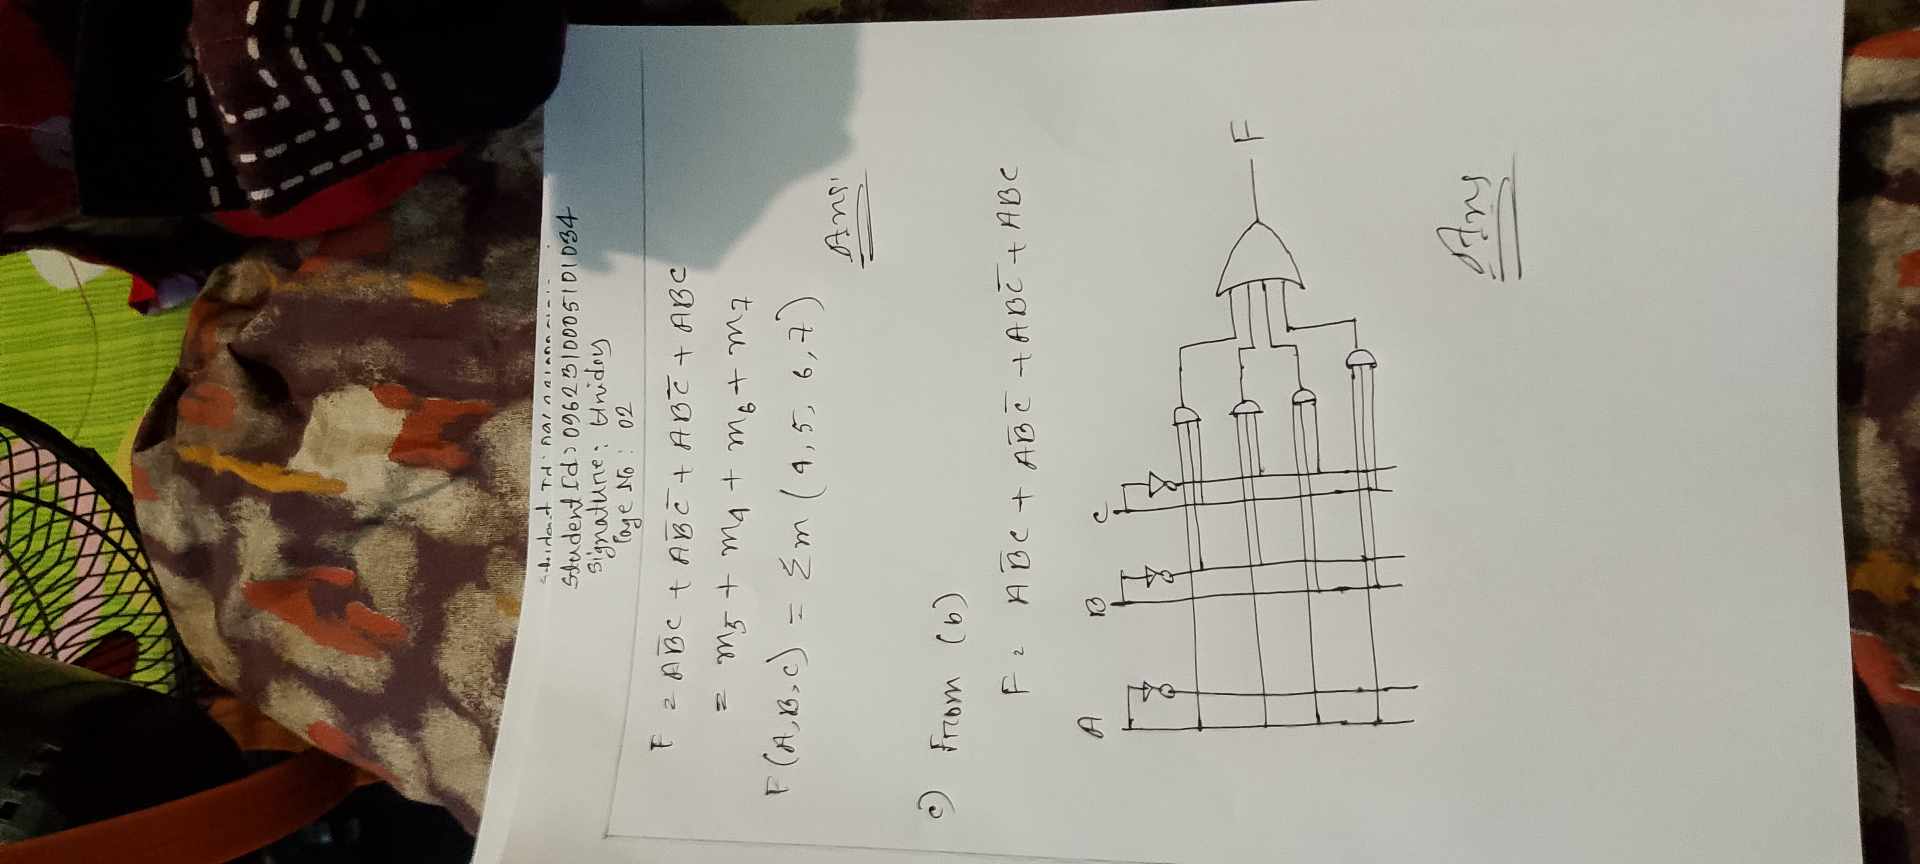 Student Id:
Student Id: 0962310005101034
Signature: Hridoy
Page No: 02
F = AB̅C + AB̅C̅ + ABC̅ + ABC
= m5 + m4 + m6 + m7
F(A,B,C) = Σm (4,5, 6,7)
Ans:
c) From (b)
F = AB̅C + AB̅C̅ + ABC̅ + ABC
A B C
F
Ans